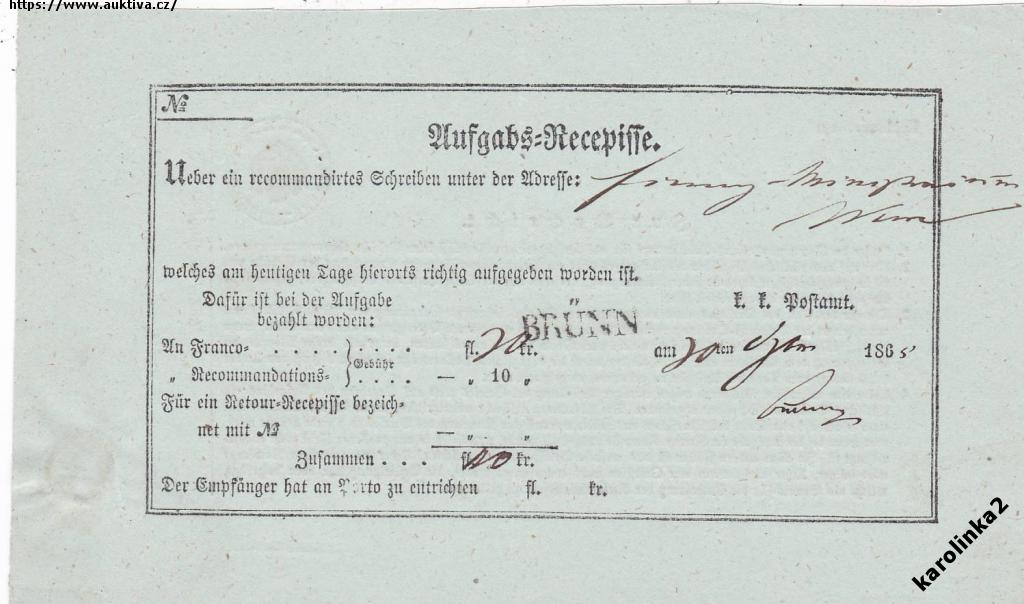 https://www.auktiva.cz/
No
Aufgabs-Recepisse.
Ueber ein recommandirtes Schreiben unter der Adresse:
Wien
welches am heutigen Tage hierorts richtig aufgegeben worden ist.
Dafür ist bei der Aufgabe
bezahlt worden:
k. k. Postamt.
BRÜNN
An Franco- . . . . . . . . . fl. kr.
am ten 1865
Gebühr
„ Recommandations- . . . . — „ 10 „
Für ein Retour-Recepisse bezeich-
net mit No — „ „
Zusammen . . . fl. kr.
Der Empfänger hat an Porto zu entrichten fl. kr.
karolinka2